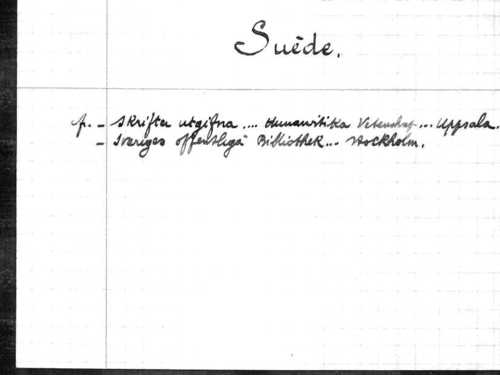 Suède.
f. - Skrifter utgifna .... Humanistika Vetenskap... Uppsala.
- Sveriges offentliga Bibliothek... Stockholm.